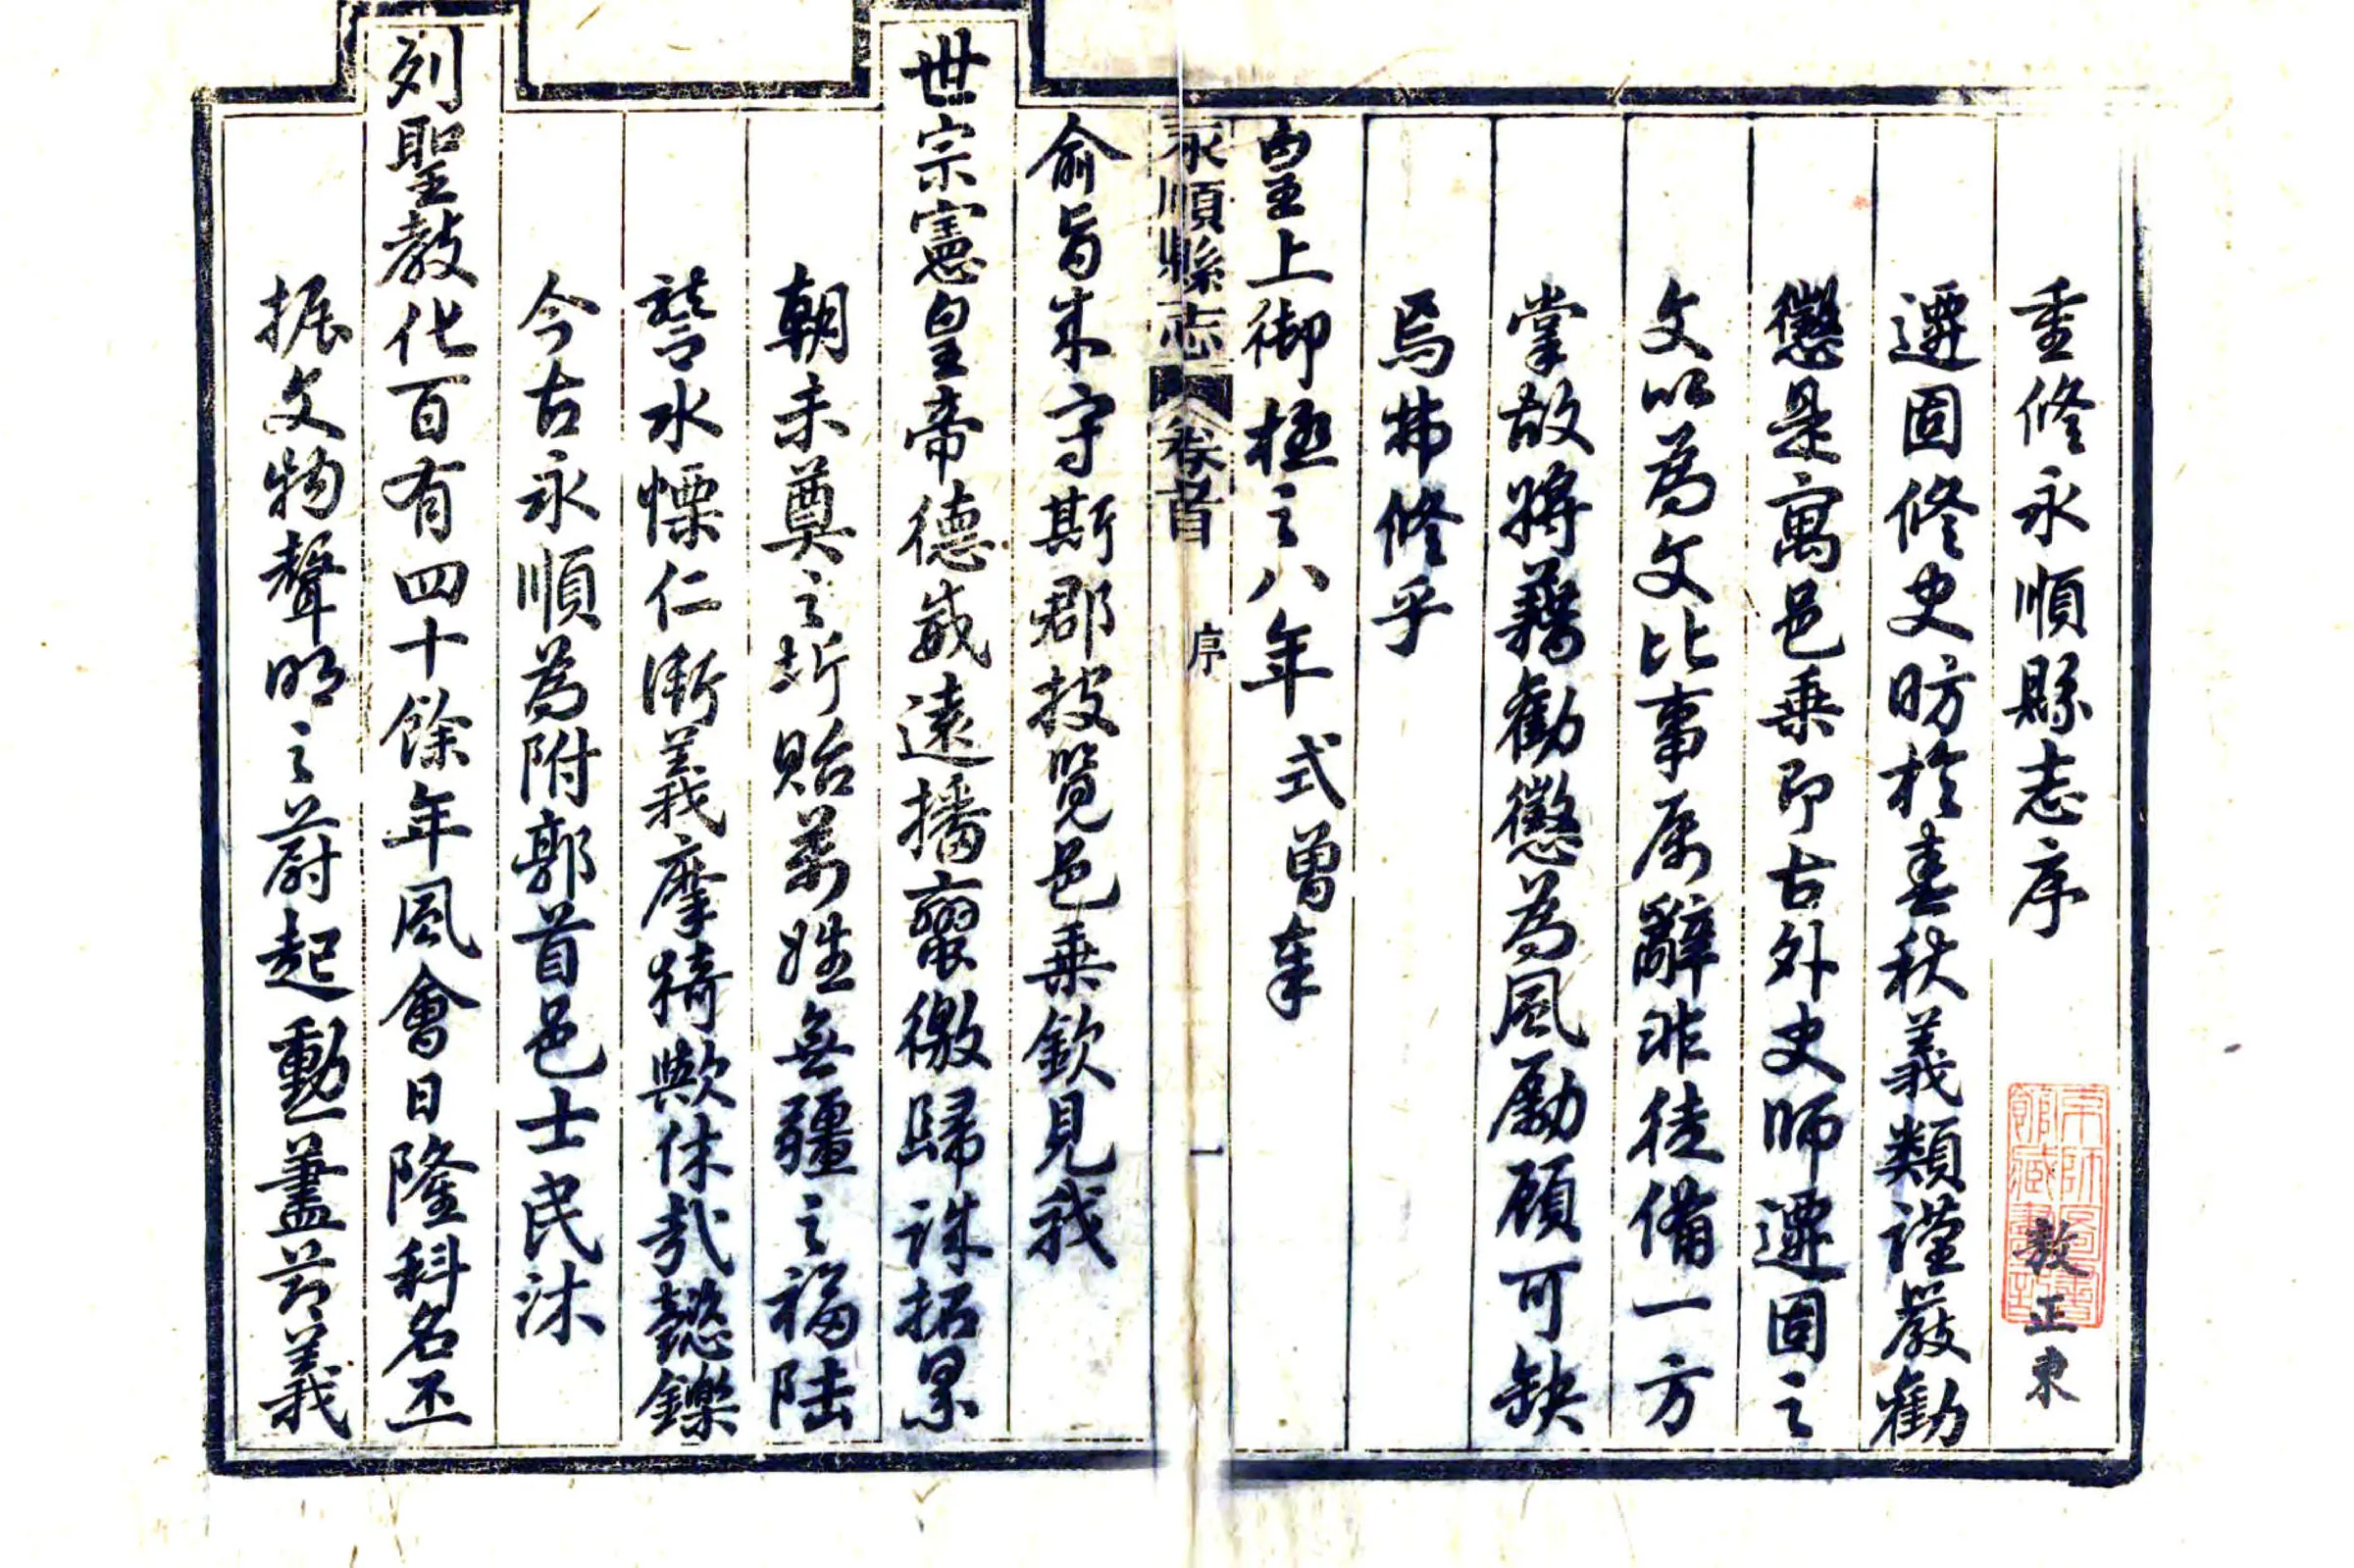 重修永順縣志序
遷固修史昉於春秋義類謹嚴勸
懲是寓邑乘即古外史師遷固之
文以為文比事属辭非徒備一方
掌故將藉勸懲為風勵顧可缺
焉弗修乎
皇上御極之八年式曾奉
永順縣志 卷首 序 一
俞旨来守斯郡披覽邑乘欽見我
世宗憲皇帝德威遠播蠻徼歸誠拓累
朝未奠之圻貽萬姓無疆之福陸
讋水慄仁漸義摩猗歟休哉懿鑠
今古永順為附郭首邑士民沐
列聖教化百有四十餘年風會日隆科名丕
振文物聲明之蔚起勳藎節義
敖正東